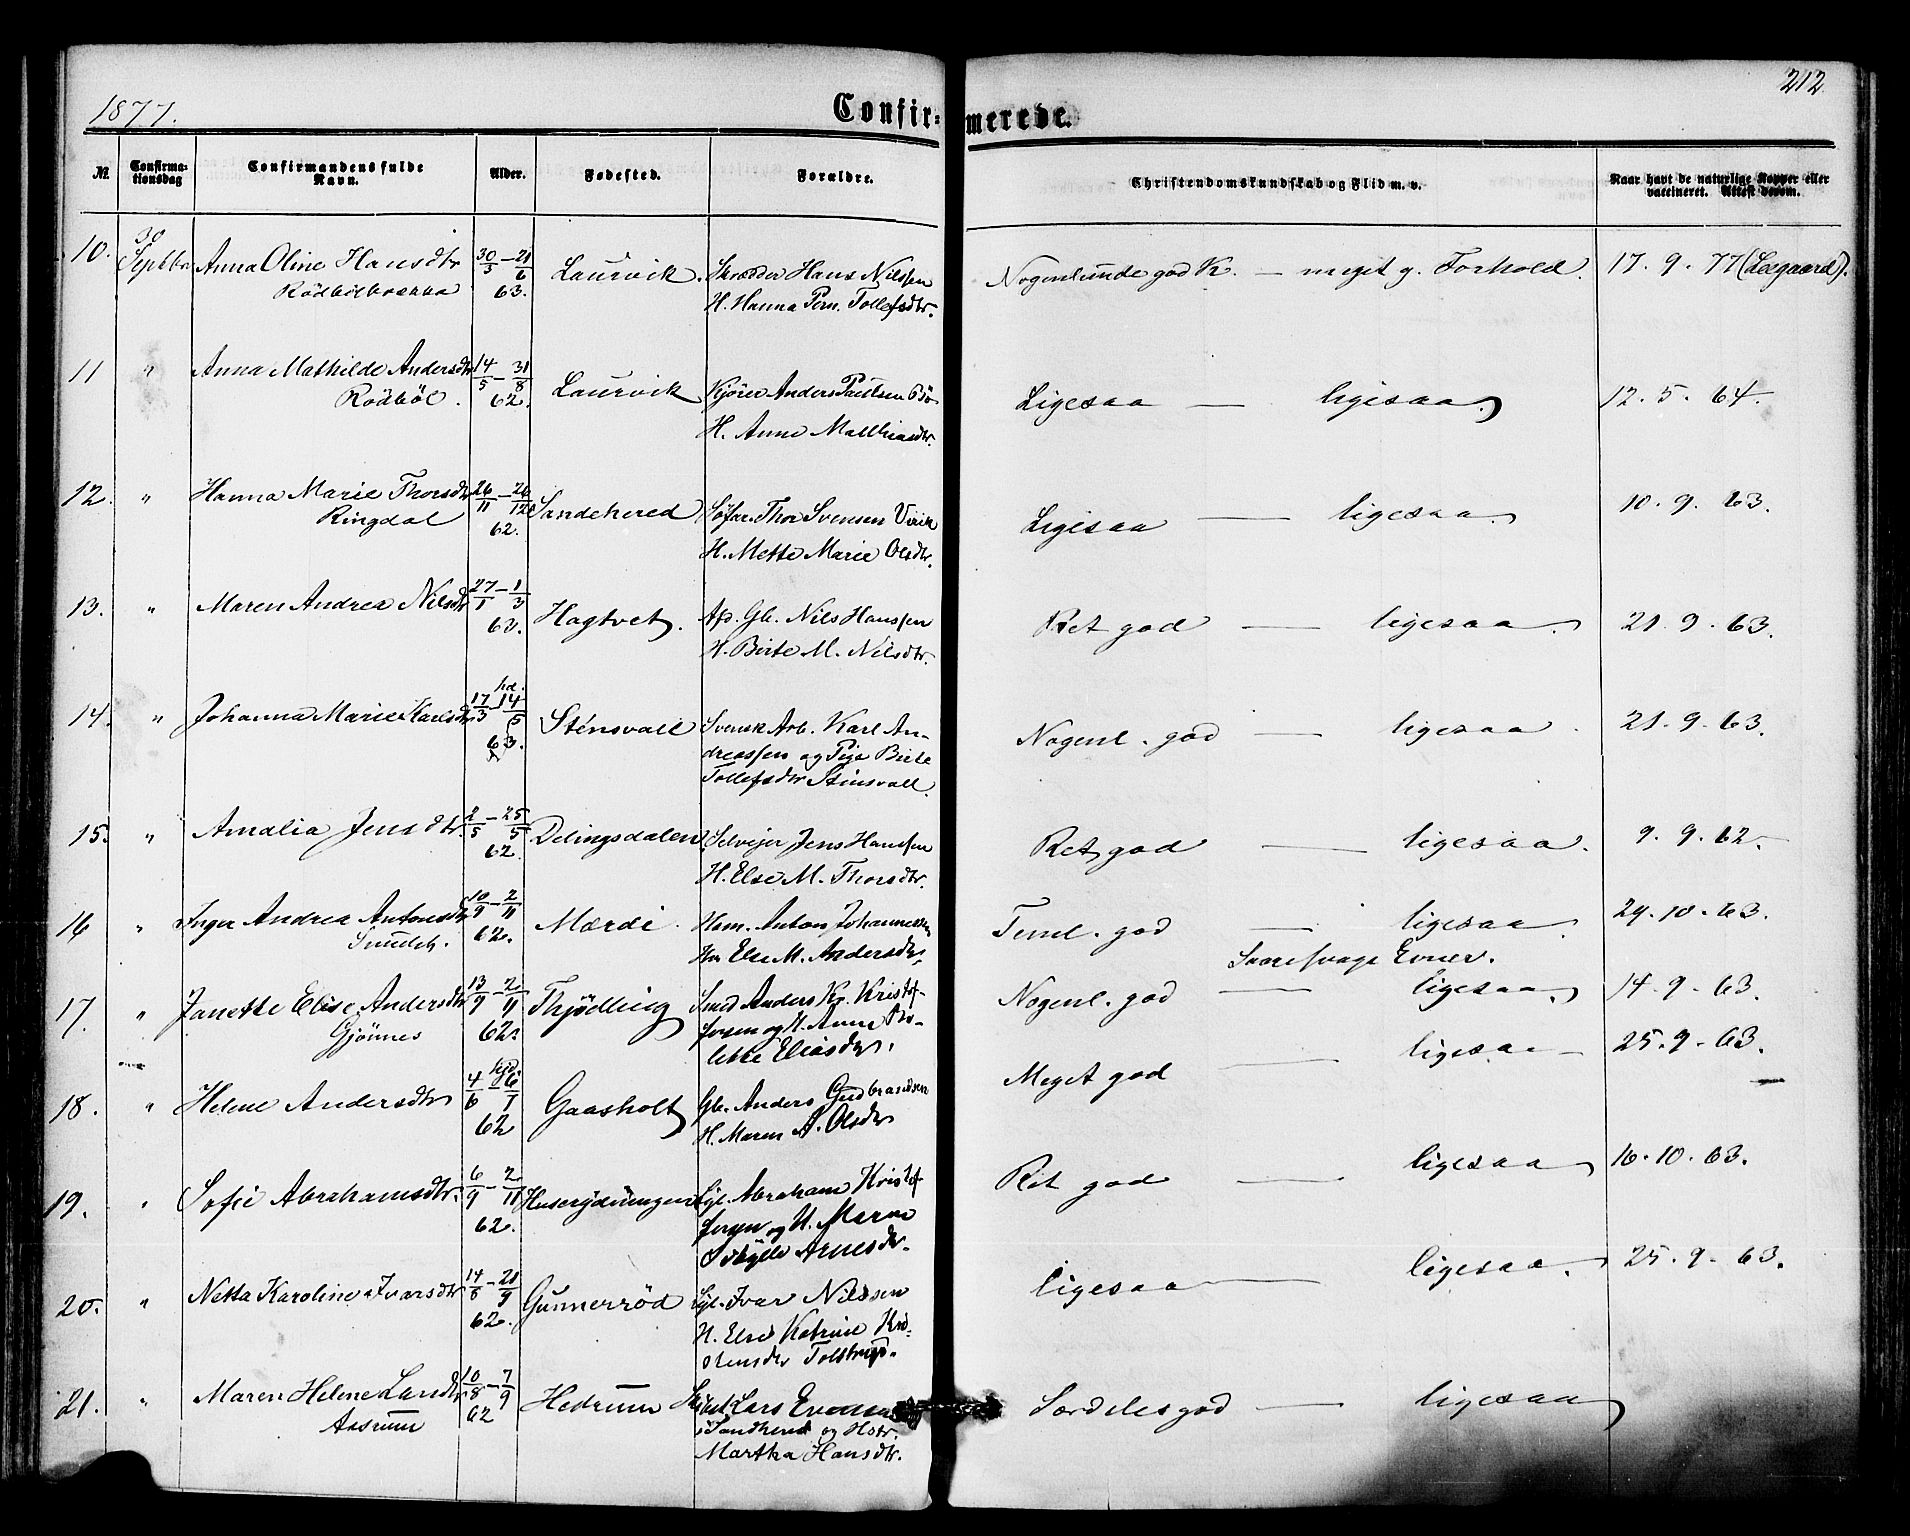 1877.
Confir-
merede.
212
№.
Confirma-
tionsdag
Confirmandens fulde
Navn.
Alder.
Fødested.
Forældre.
Christendomskundskab og Flid m. v.
Naar havt de naturlige Kopper eller
vaccineret. Attest derom.
10. 30 Septbr Anna Oline Hansdtr 30/3 – 21/6 63. Laurvik. Skrædder Hans Nilssen
Rödbölbrækka H. Hanna Pern. Tollefsdtr.
Nogenlunde god K. — meget g. Forhold. 17. 9. 77 (Leegaard).
11 " Anna Mathilde Andersdtr 14/5 – 31/8 62. Laurvik Kjörer Anders Paulsen Bö
Rödböl. H. Anne Mathiasdtr.
Ligesaa — ligesaa. 12. 5. 64.
12. " Hanna Marie Thorsdtr 26/11 – 26/12 62. Sandehered Söfar. Thor Svensen Virik
Ringdal H. Mette Marie Olsdtr.
Ligesaa — ligesaa. 10. 9. 63.
13. " Maren Andrea Nilsdtr 27/1 – 1/3 63. Hagtvet. Afs. Gb. Nils Hanssen
H. Birte M. Nilsdtr.
Ret god — ligesaa. 21. 9. 63.
14. " Johanna Marie Karlsdtr 17/3 – 14/5 63. Stensvall Svensk Arb. Karl An-
dreassen og Pige Birte
Tollefsdtr Stensvall.
Nogenl. god — ligesaa. 21. 9. 63.
15. " Amalia Jensdtr 2/5 – 25/5 62. Delingsdalen Selvejer Jens Hansen
H. Else M. Thorsdtr.
Ret god — ligesaa. 9. 9. 62.
16 " Inger Andrea Antonsdtr 10/9 – 2/11 62. Mærde. Hsm. Anton Johannessen
H. Else M. Andersdtr.
Teml. god — ligesaa. 29. 10. 63.
Svage Evner.
17. " Janette Elise Andersdtr 13/9 – 2/11 62. Thjödling Smed Anders Kr. Kristof-
Gjönnes fersen og H. Anne
Eliasdtr.
Nogenl. god — ligesaa. 14. 9. 63.
18. " Helene Andersdtr 4/6 – 6/7 62 Gaasholt Gb. Anders Gudbrandsen
H. Maren A. Olsdtr
Meget god — ligesaa — 25. 9. 63.
19. " Sofie Abrahamsdtr. 6/9 – 2/11 62. Huserydningen Abraham Kristof-
fersen og H. Maren
Sibylle Arnesdtr.
Ret god — ligesaa 16. 10. 63.
20. " Netta Karoline Ivarsdtr 14/8 – 21/9 62. Gunnerröd Ivar Nilssen
H. Else Katrine Kri-
stensdtr Tolstrup.
ligesaa — ligesaa. 25. 9. 63.
21. " Maren Helene Larsdtr 10/8 – 7/9 62 Hedrum Lars Evensen
Aasrum i Sandhered og Hstr.
Martha Hansdtr.
Særdeles god — ligesaa